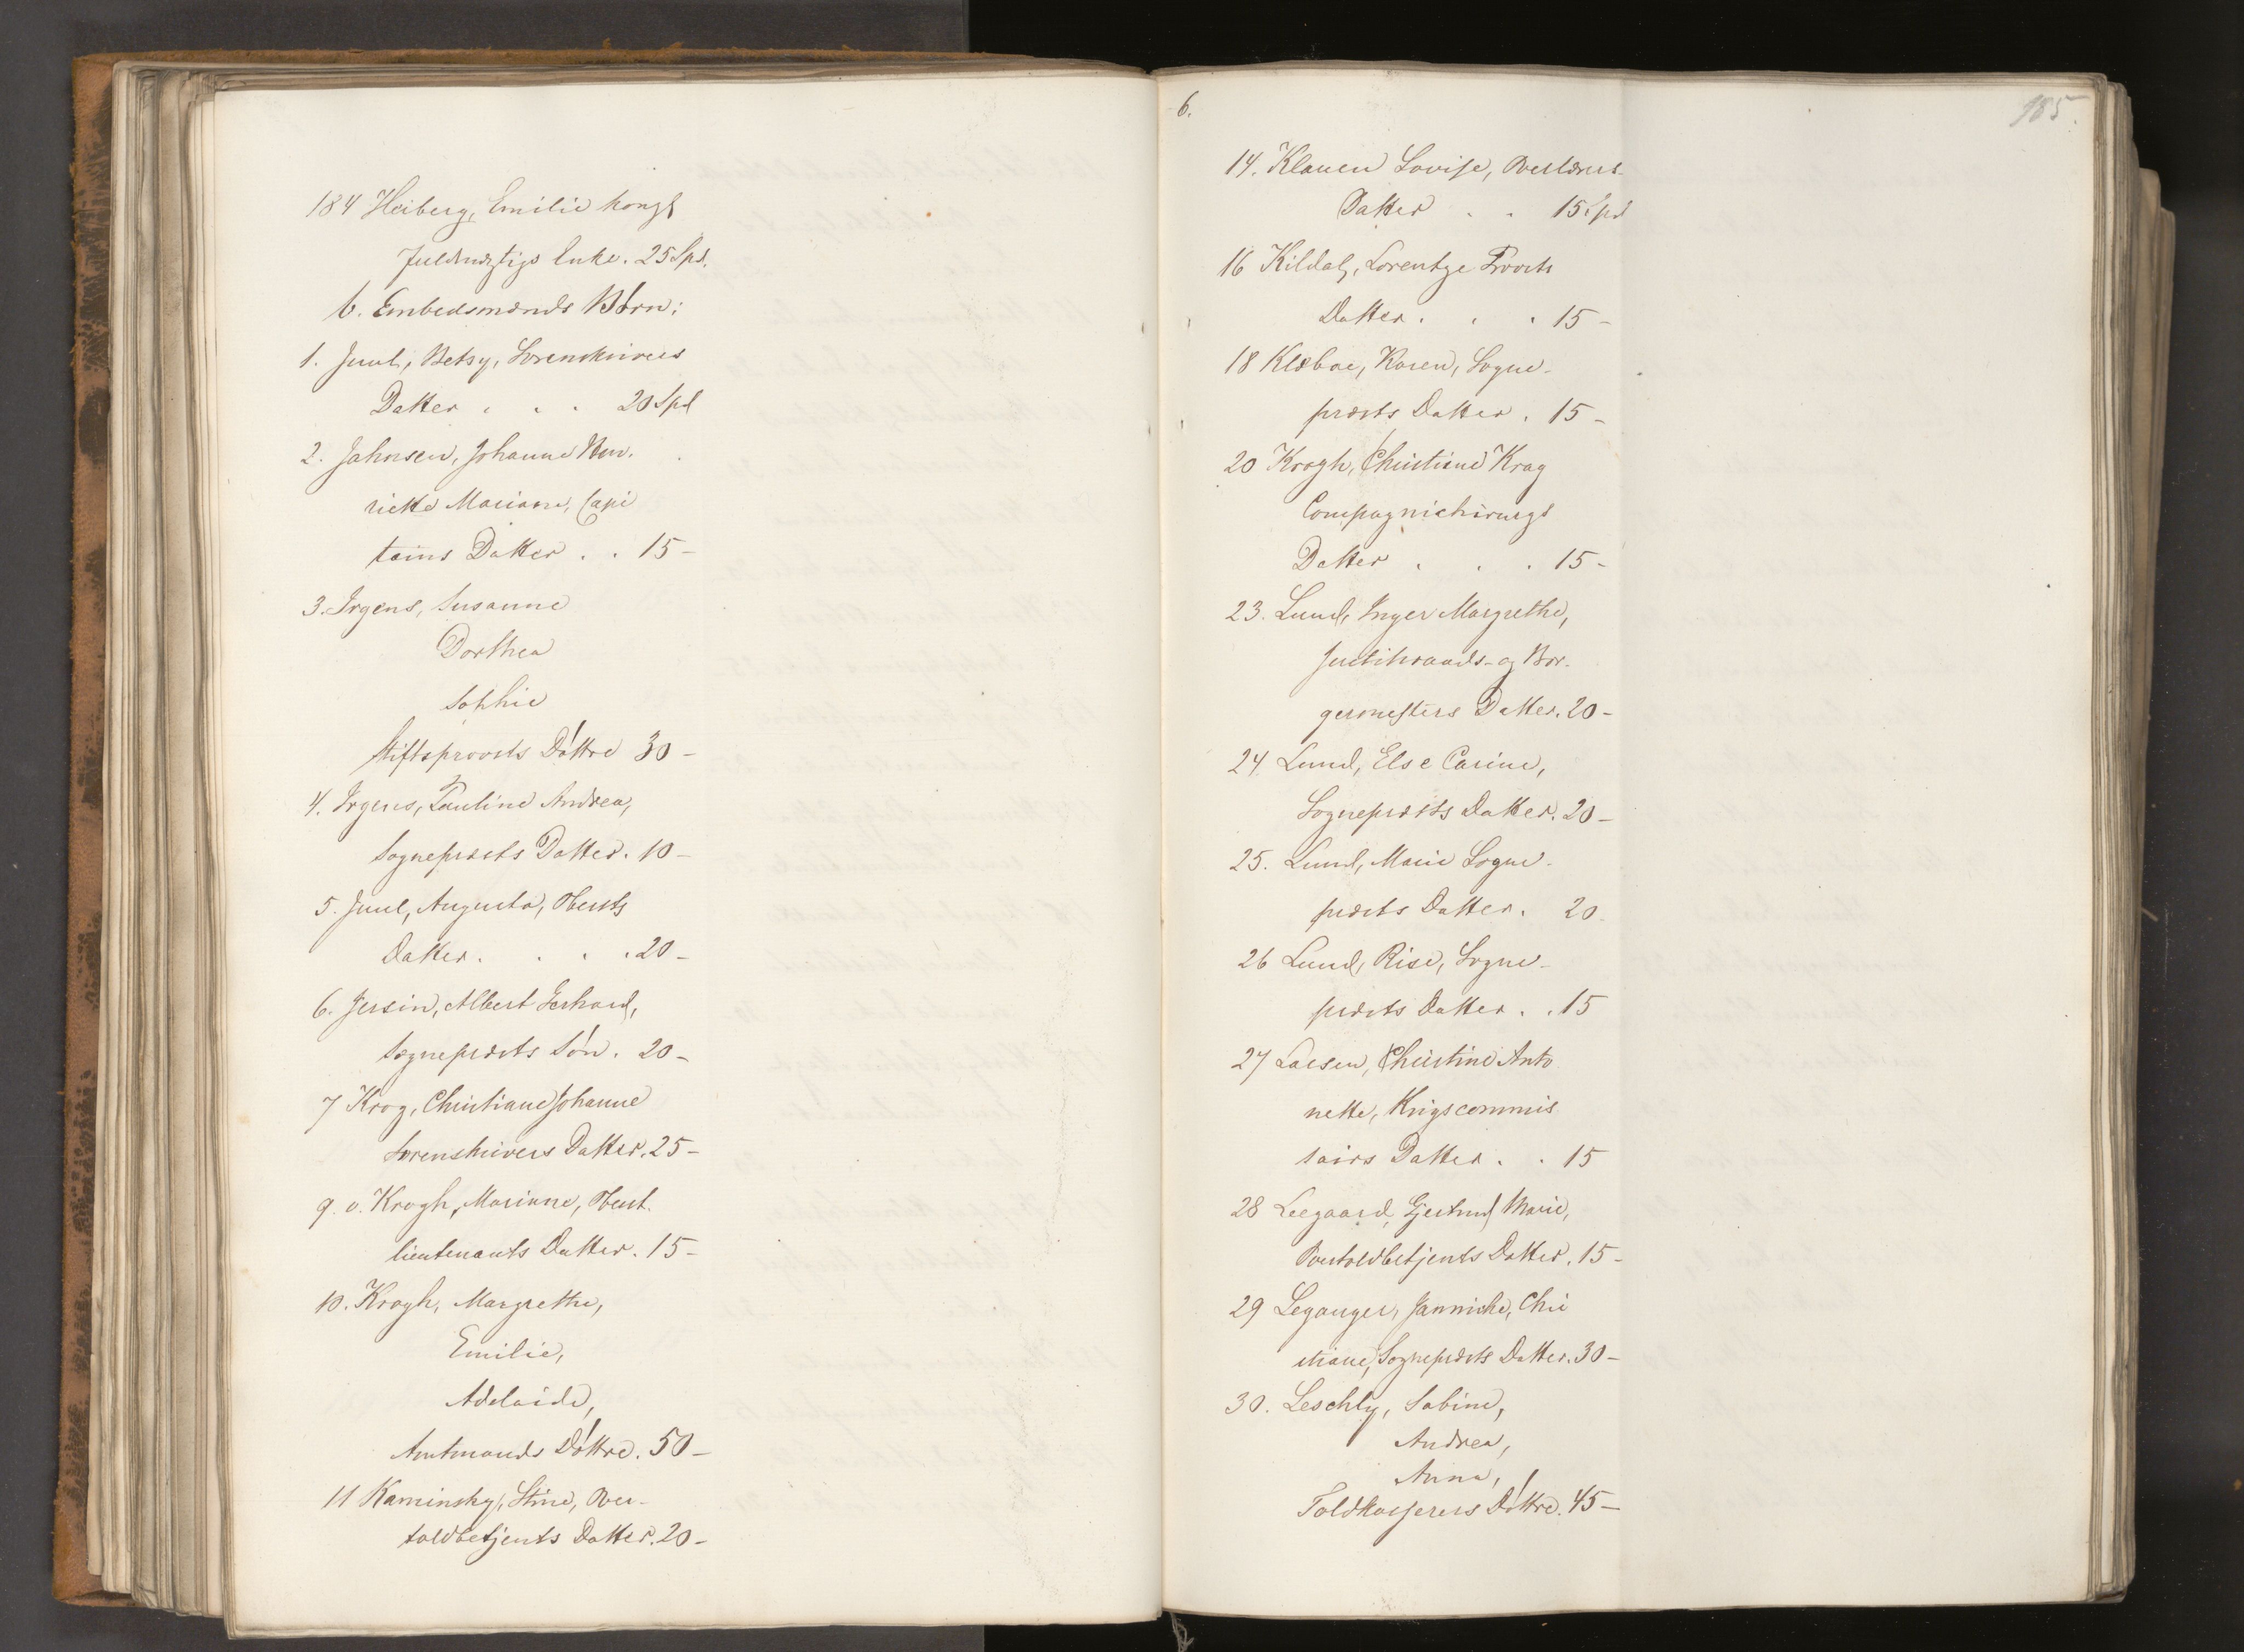 184 Heiberg, Emilie kongl
Fuldmægtigs Enke. 25 Spd.
b. Embedsmænds Børn:
1. Juul, Betsy, Sorenskrivers
Datter . . . 20 Spd
2. Jahnsen, Johanne Hen.
riette Mariane, Capi
tains Datter . . 15 -
3. Irgens, Susanne
Dorthea
Sophie
Stiftsprovsts Døttre 30 -
4. Irgens, Pauline Andrea,
Sognepræsts Datter. 10 -
5. Juul, Augusta, Obersts
Datter. . . . 20 -
6. Jersin, Albert Gerhard,
Sognepræsts Søn. 20 -
7 Krog, Christiane Johanne
Sorenskrivers Datter. 25 -
9. v. Krogh, Mariane, Oberst.
lieutenants Datter. 15 -
10. Krogh, Margrethe,
Emilie,
Adelaide,
Amtmands Døttre. 50 -
11 Kaminsky, Stine, Over-
toldbetjents Datter. 20 -
6.
185.
14. Klauen Lovise, Overlærers
Datter . . 15 Spd
16 Kildal, Lorentze Provsts
Datter . . . 15 -
18 Klæboe, Karen, Sogne-
præsts Datter . 15 -
20 Krogh, Christiane Krag
Compagnichirurgs
Datter . . . 15 -
23. Lund, Inger Margrethe,
Justitsraads- og Bor-
germesters Datter. 20 -
24 Lund, Else Carine,
Sognepræsts Datter. 20 -
25. Lund, Marie Sogne-
præsts Datter. 20
26 Lund, Rise, Sogne-
præsts Datter . . 15
27 Larsen, Christine Anto
nette, Krigscommis
sairs Datter . . 15
28 Leegaard, Gjertrud Marie,
Overtoldbetjents Datter. 15 -
29 Leganger, Jannicke, Chri
stiane, Sognepræsts Datter. 30 -
30. Leschly, Sabine,
Andrea,
Anna,
Toldkasserers Døttre. 45 -